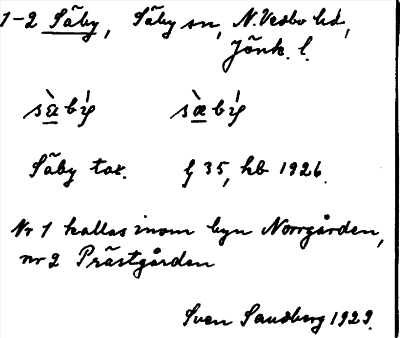 1-2 Säby, Säby sn, N. Vedbo hd,
Jönk. l.
Säby tax. f 35, hb 1926.
Nr 1 kallas inom byn Norrgården,
nr 2 Prästgården
Sven Sandberg 1929.